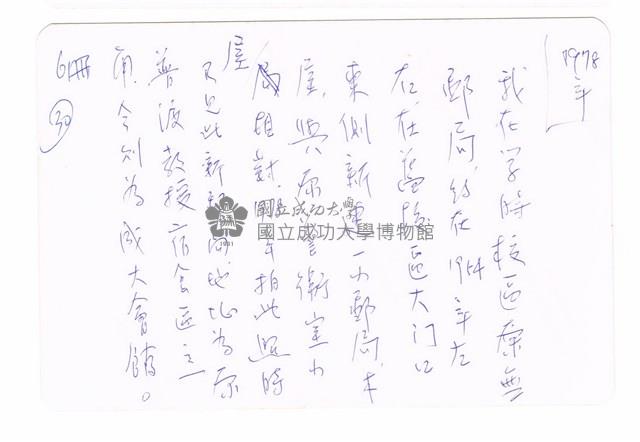 1978年
我在学時校區原無
郵局,約在1964年左
右,在舊 區大门口
東側新建一小郵局,木
屋,與原警衛室小
屋相對 年拍此照時
只見此新 地,此為原
普渡教授宿舍區之一
角,今則為成大會館。
6冊
30
國立成功大學
國立成功大學博物館
1931